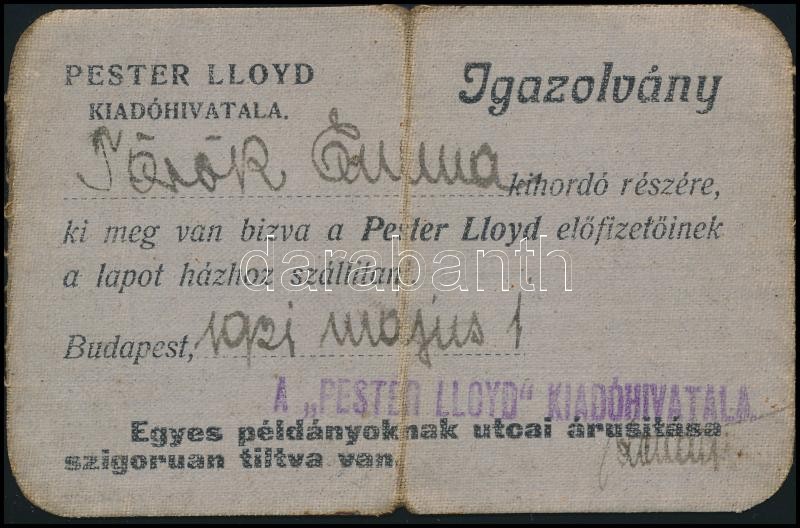 PESTER LLOYD
KIADÓHIVATALA.
Igazolvány
Török Emma kihordó részére,
ki meg van bizva a Pester Lloyd előfizetőinek
a lapot házhoz szállitan
darabanth
Budapest, 1921 május 1
A „PESTER LLOYD" KIADÓHIVATALA.
Egyes példányoknak utcai árusitása
szigoruan tiltva van.